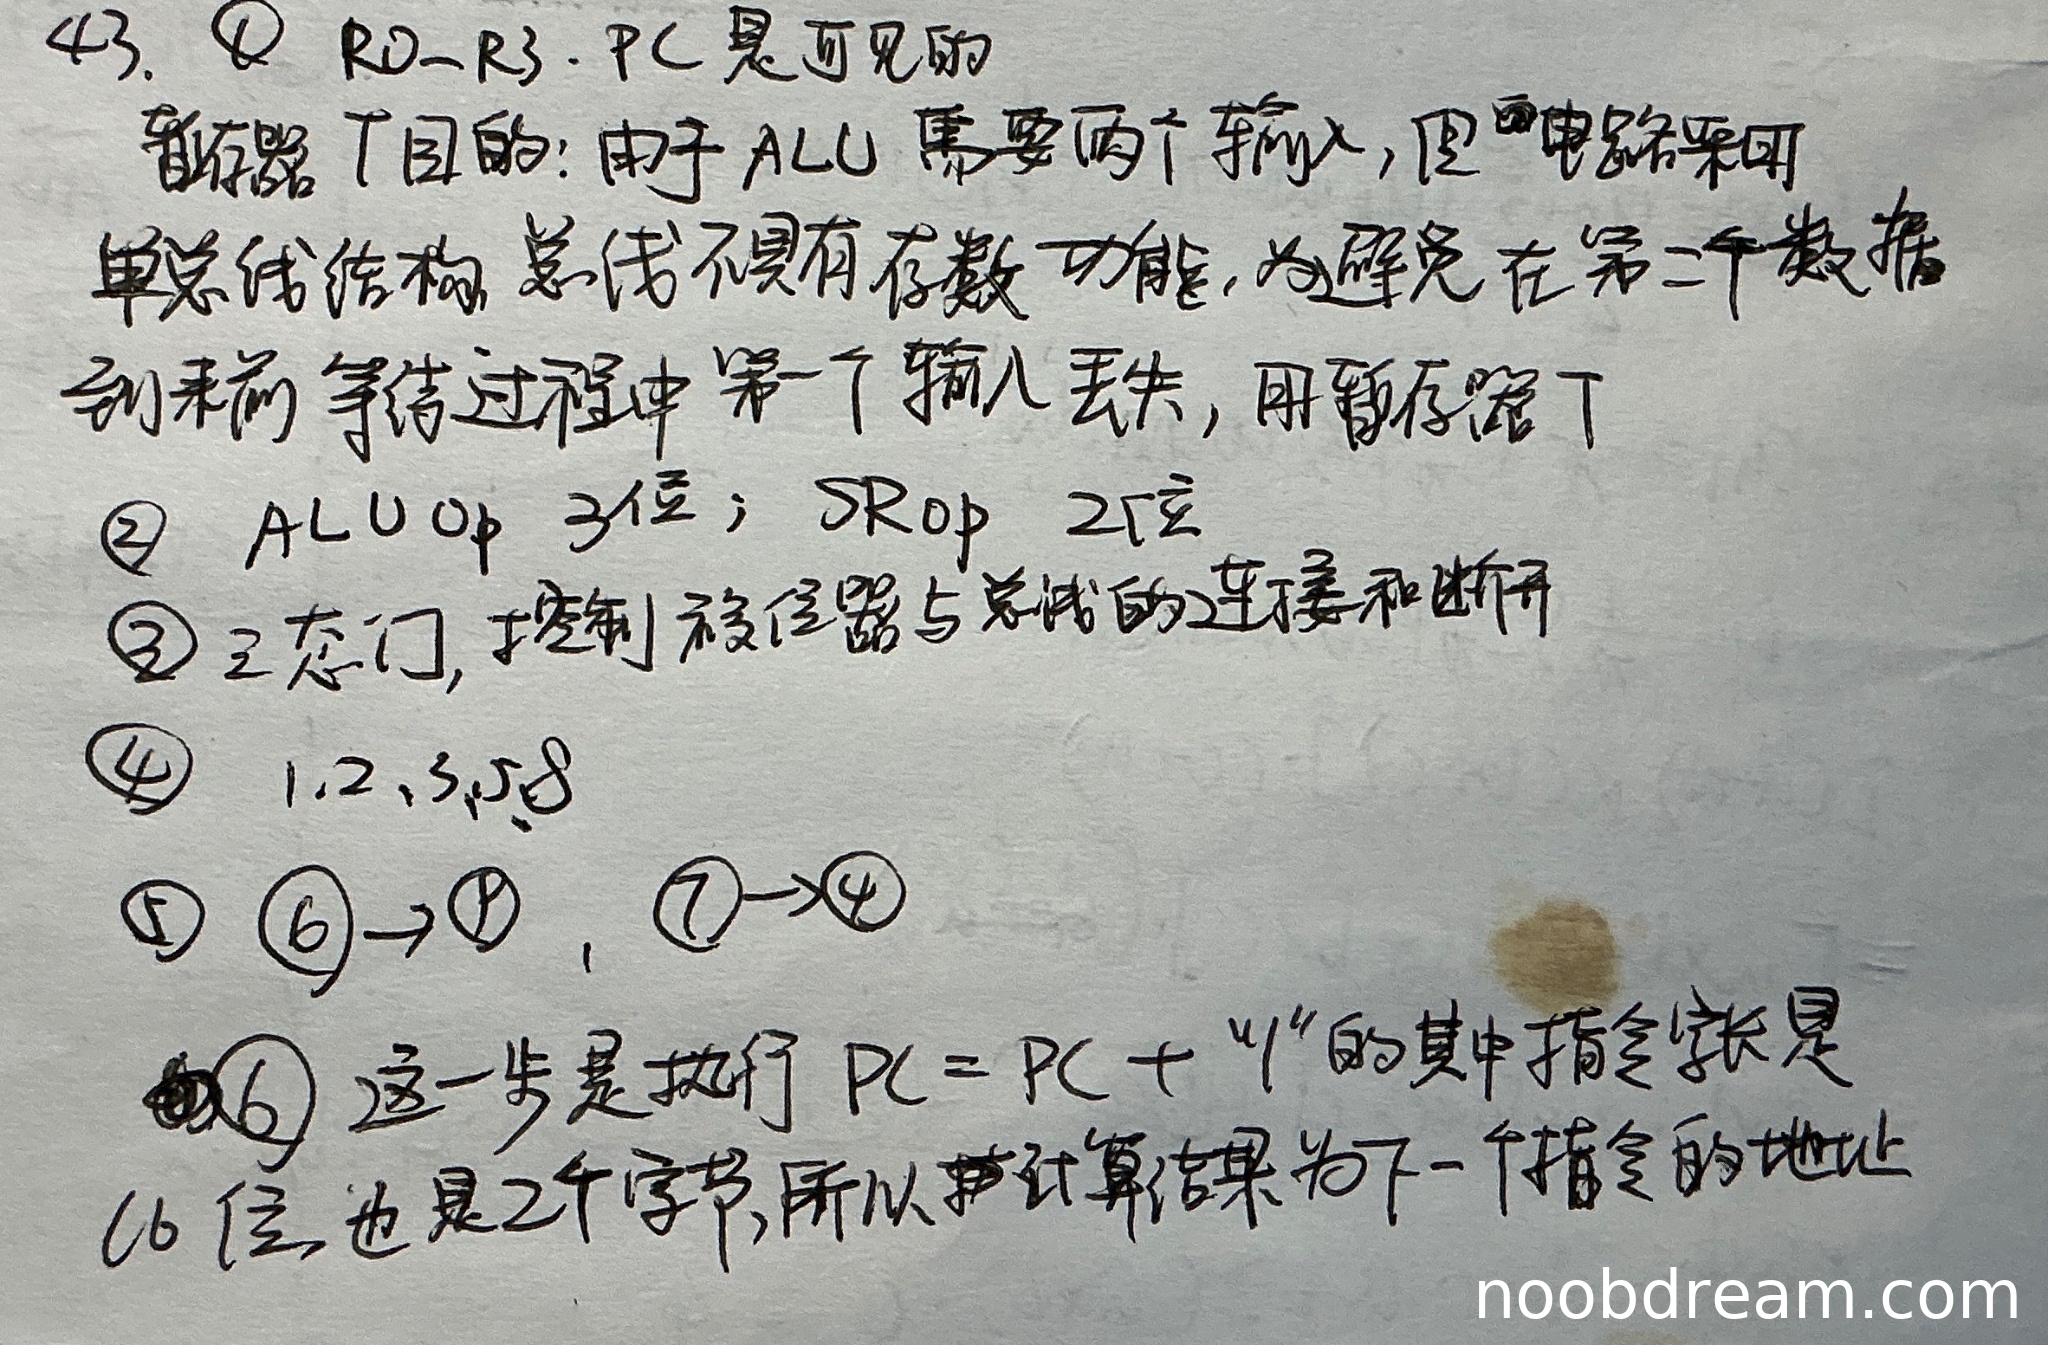 43. ① R0-R3. PC 是可见的
暂存器 T 目的: 由于 ALU 需要两个输入, 因电路采用
单总线结构, 总线不具有存数功能, 为避免在第二个数据
到来前等待过程中第一个输入丢失, 用暂存器T
② ALUop 3位; SRop 2位
③ 三态门, 控制移位器与总线的连接和断开
④ 1.2、3、5、8
⑤ ⑥→⑨, ⑦→④
⑥ 这一步是执行 PC = PC + "1" 的其中指令字长是
16 位, 也是2个字节, 所以计算结果为下一个指令的地址
noobdream.com